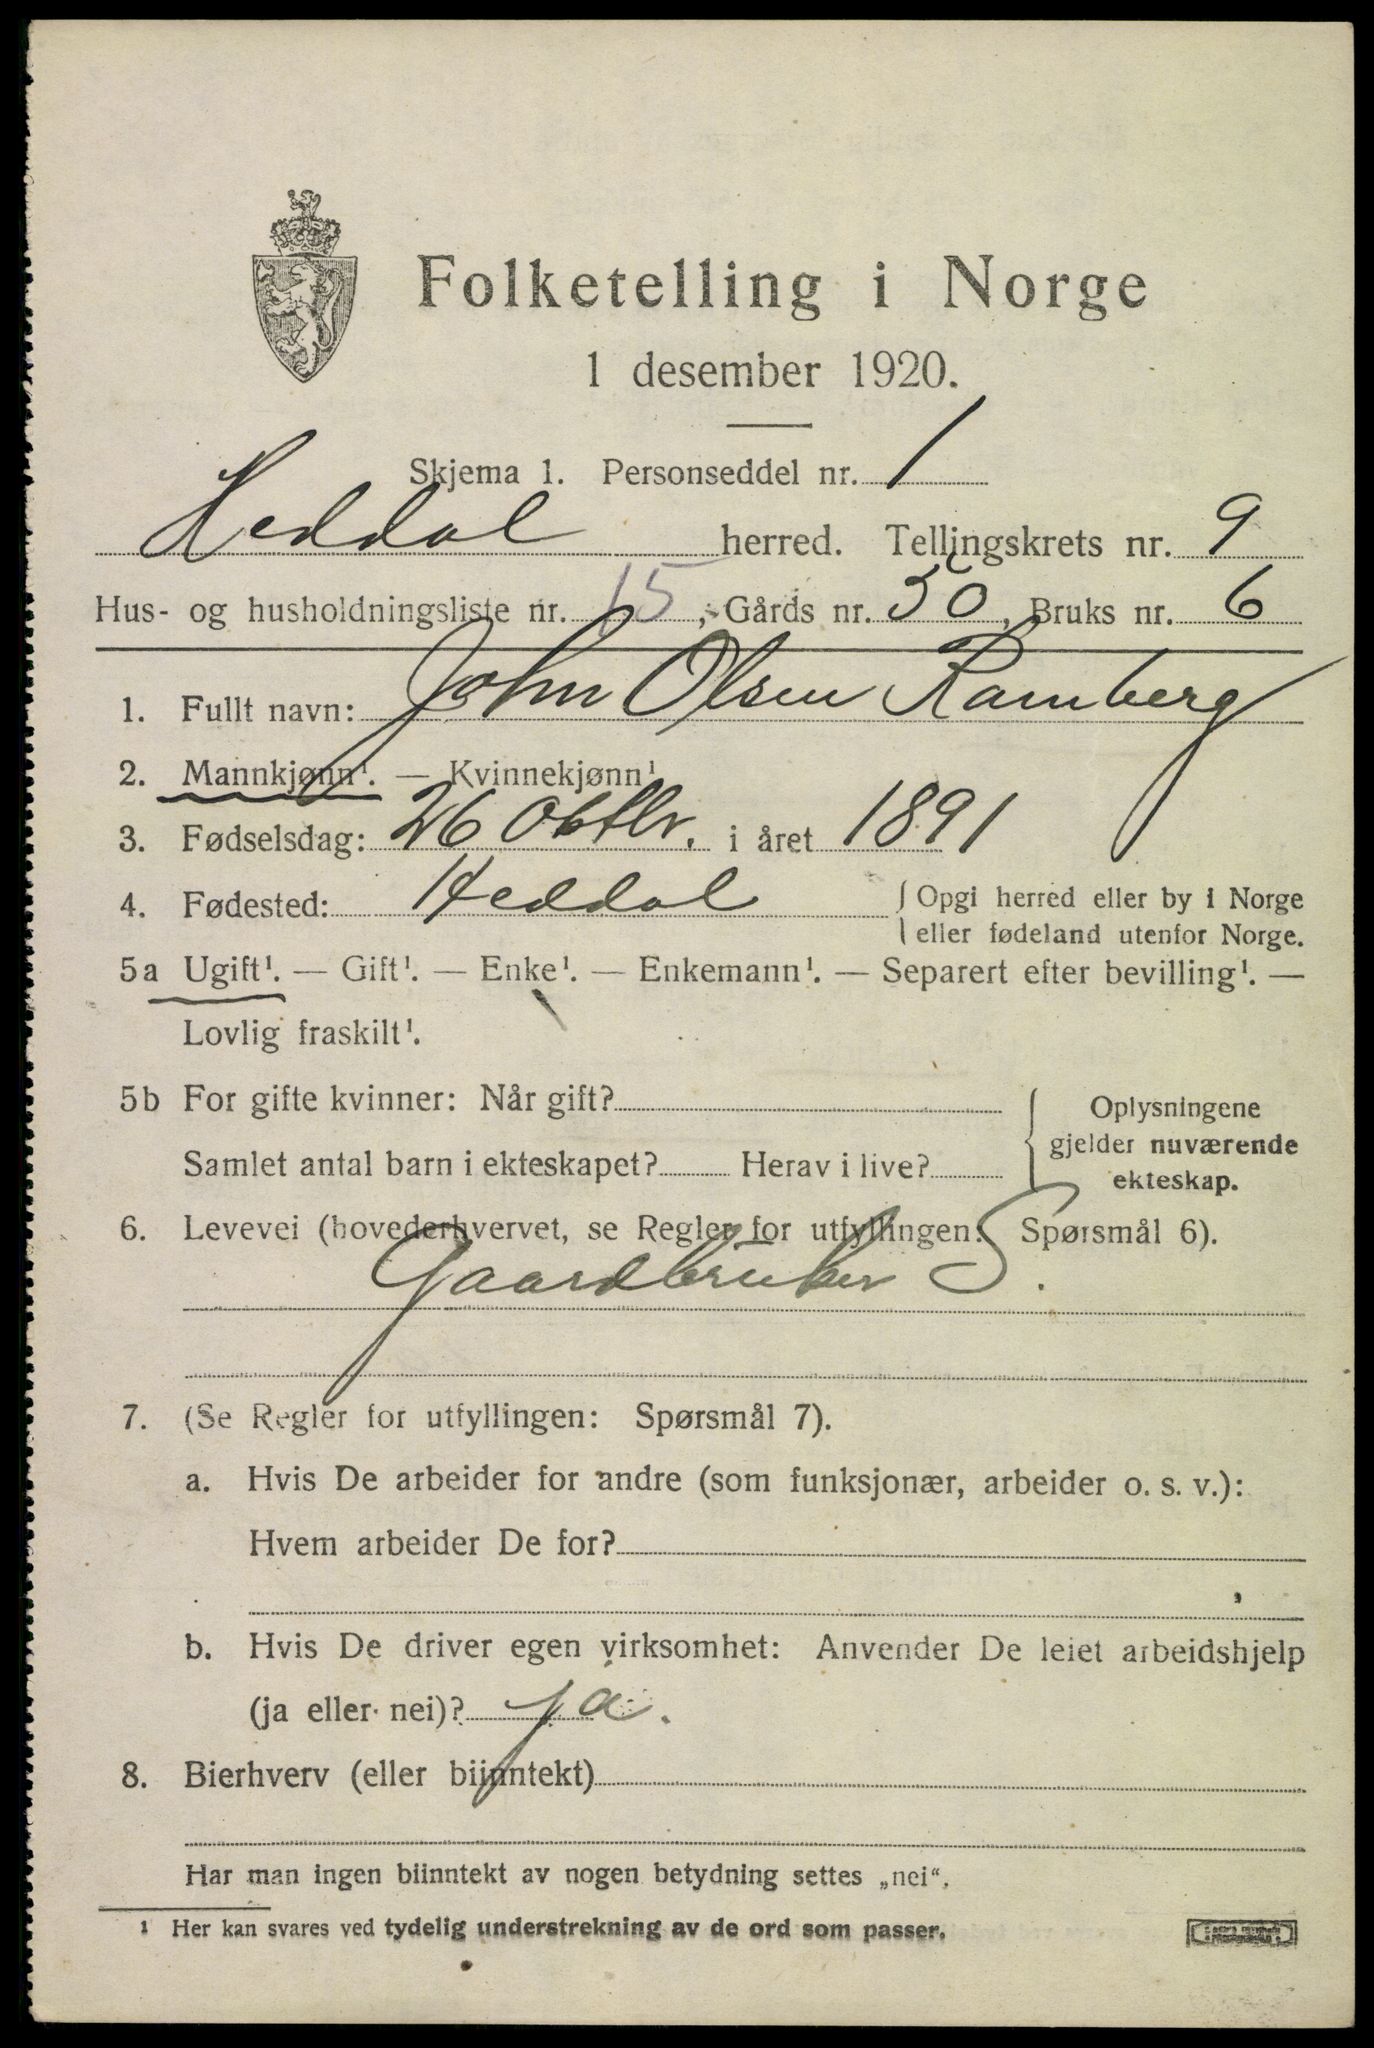 Folketelling i Norge
1 desember 1920.
Skjema 1. Personseddel nr. 1
Heddal herred. Tellingskrets nr. 9
Hus- og husholdningsliste nr. 15, Gårds nr. 50, Bruks nr. 6
1. Fullt navn: John Olsen Ramberg
2. Mannkjønn¹. — Kvinnekjønn¹
3. Fødselsdag: 26 Oktbr. i året 1891
4. Fødested: Heddal { Opgi herred eller by i Norge
eller fødeland utenfor Norge.
5a Ugift¹. — Gift¹. — Enke¹. — Enkemann¹. — Separert efter bevilling¹. —
Lovlig fraskilt¹.
5b For gifte kvinner: Når gift?
Samlet antal barn i ekteskapet? Herav i live?
{ Oplysningene
gjelder nuværende
ekteskap.
6. Levevei (hovederhvervet, se Regler for utfyllingen: Spørsmål 6).
Gaardbruker S.
7. (Se Regler for utfyllingen: Spørsmål 7).
a. Hvis De arbeider for andre (som funksjonær, arbeider o. s. v.):
Hvem arbeider De for?
b. Hvis De driver egen virksomhet: Anvender De leiet arbeidshjelp
(ja eller nei)? ja.
8. Bierhverv (eller biinntekt)
Har man ingen biinntekt av nogen betydning settes „nei“.
¹ Her kan svares ved tydelig understrekning av de ord som passer.